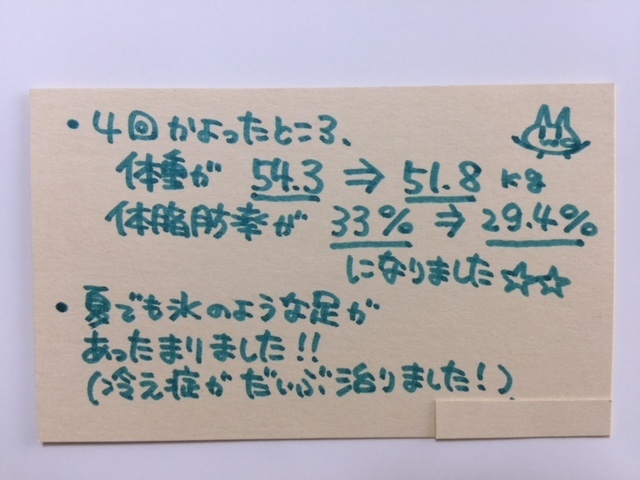 ・4回かよったところ、
体重が 54.3 ⇒ 51.8 kg
体脂肪率が 33% ⇒ 29.4%
になりました☆☆
・夏でも氷のような足が
あったまりました!!
(冷え症がだいぶ治りました!)